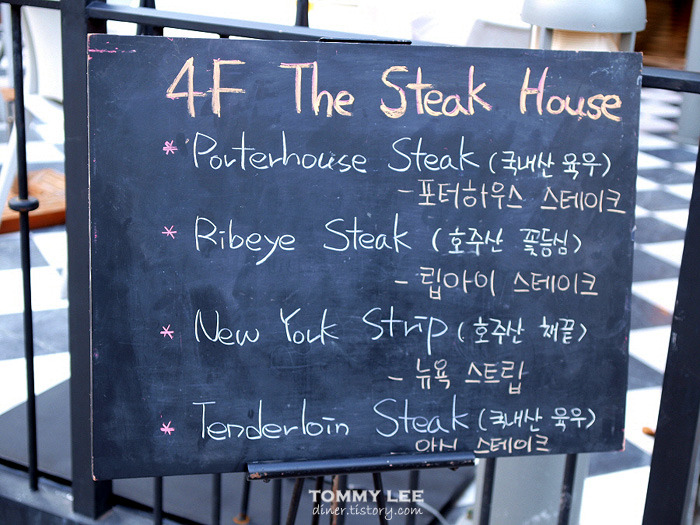 4F The Steak House
* Porterhouse Steak (국내산 육우)
- 포터하우스 스테이크
* Ribeye Steak (호주산 꽃등심)
- 립아이 스테이크
* New York Strip (호주산 채끝)
- 뉴욕 스트립
* Tenderloin Steak (국내산 육우)
안심 스테이크
TOMMY LEE
diner.tistory.com